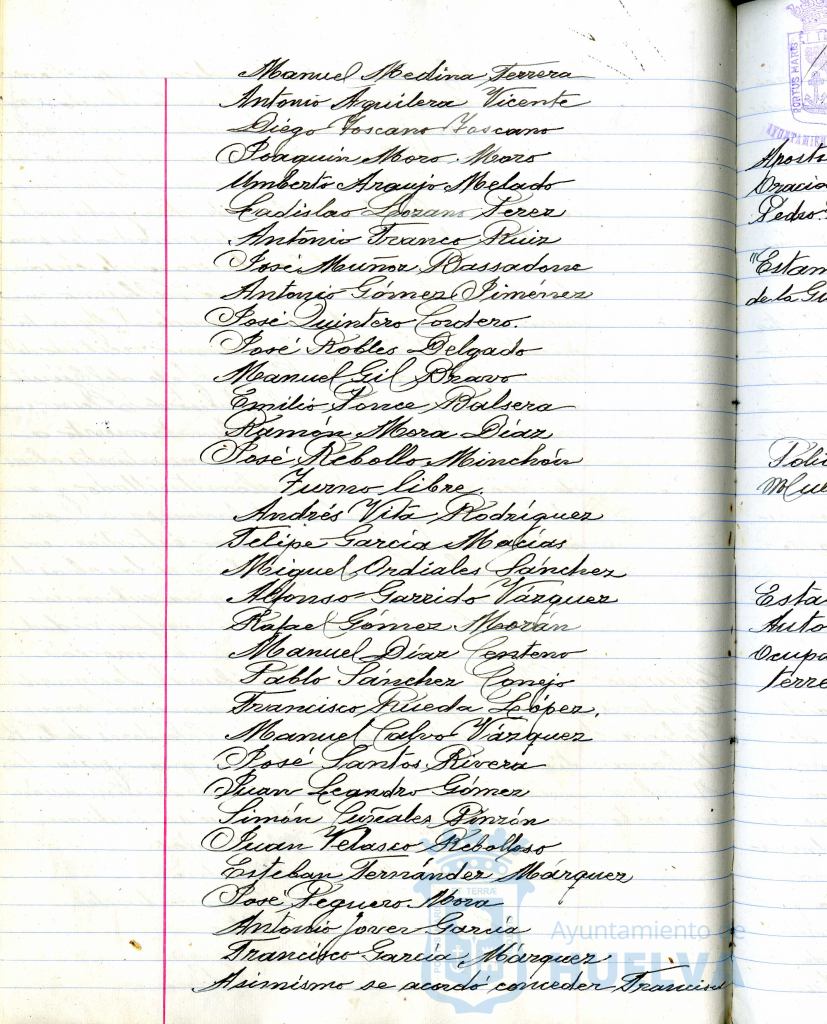 Manuel Medina Ferrera
Antonio Aguilera Vicente
Diego Toscano Toscano
Joaquín Moro Moro
Umberto Araujo Melado
Ladislao Lozano Perez
Antonio Franco Ruiz
José Muñoz Bassadone
Antonio Gómez Jiménez
José Quintero Cordero.
José Robles Delgado
Manuel Gil Bravo
Emilio Ponce Balsera
Ramón Mora Díaz
José Rebollo Minchón
Turno libre.
Andrés Vita Rodríguez
Felipe García Macías
Miguel Ordiales Sánchez
Alfonso Garrido Vázquez
Rafael Gómez Morán
Manuel Díaz Centeno
Pablo Sánchez Conejo
Francisco Rueda López.
Manuel Calvo Vázquez
José Santos Rivera
Juan Leandro Gómez
Simón Pinzón
Juan Velasco Rebolloso
Esteban Fernández Márquez
José Peguero Mora
Antonio Jover García
Francisco García Márquez
Asimismo se acordó conceder
Ayuntamiento de
HUELVA
PORTUS MARIS
Pedro
"Estan
de la Gu
Esta
Auto
Ocupa
terre